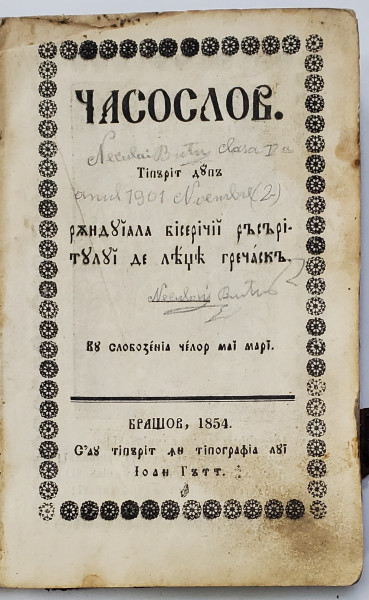 ЧАСОСЛОВ.
Neculai Butu clasa V a
Тіпъріт дꙋпъ
anul 1901 Noembre (2)
рѫндꙋіала бісерічіĭ ръсърі-
тꙋлꙋĭ де лѣџѣ гречáскъ.
Neculai Butu
Кꙋ слобозéніа чéлор маĭ марĭ.
БРАШОВ, 1854.
С'аꙋ тіпъріт ꙟн тіпографіа лꙋĭ
Іоан Гътт.